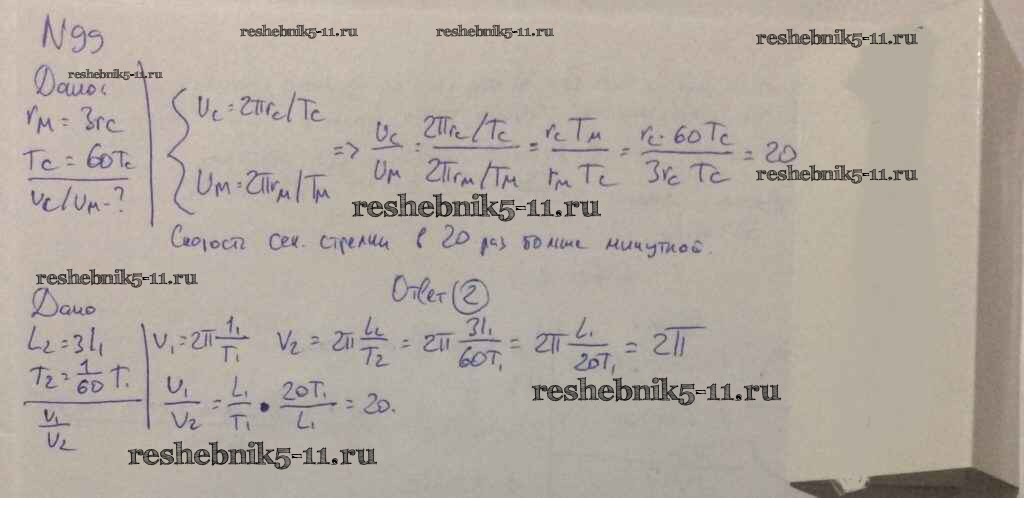 N99
reshebnik5-11.ru reshebnik5-11.ru reshebnik5-11.ru
reshebnik5-11.ru
Дано:
rм = 3rc
Tc = 60Tc
υc/υм - ?
υc = 2πrc/Tc
υм = 2πrм/Tм
=> υc/υм = (2πrc/Tc)/(2πrм/Tм) = rc Tм/rм Tc = rc·60Tc/3rc Tc = 20
reshebnik5-11.ru
reshebnik5-11.ru
Скорость сек. стрелки в 20 раз больше минутной.
reshebnik5-11.ru
Ответ (2)
Дано
L2 = 3L1
T2 = 1/60 T1
υ1/υ2
υ1 = 2π 1/T1 υ2 = 2π L2/T2 = 2π 3L1/60T1 = 2π L1/20T1 = 2π
υ1/υ2 = L1/T1 • 20T1/L1 = 20.
reshebnik5-11.ru
reshebnik5-11.ru